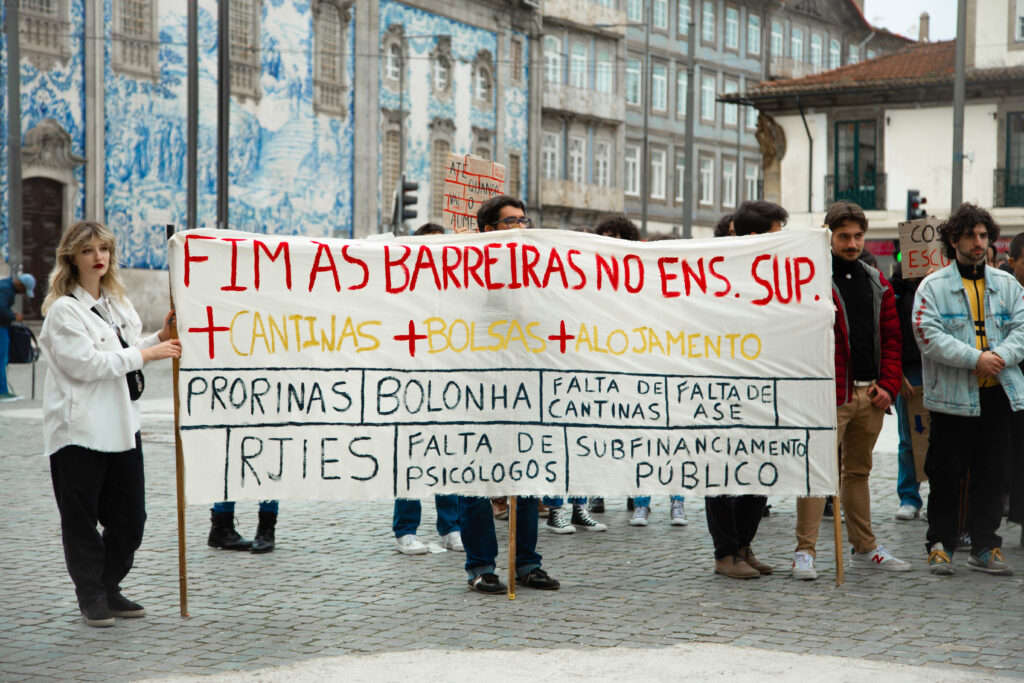 ATÉ
QUANDO
VAI O
AUME
FIM ÀS BARREIRAS NO ENS. SUP.
+CANTINAS +BOLSAS +ALOJAMENTO
PRORINAS BOLONHA FALTA DE CANTINAS FALTA DE ASE
RJIES FALTA DE PSICÓLOGOS SUBFINANCIAMENTO PÚBLICO
COS
ESCO